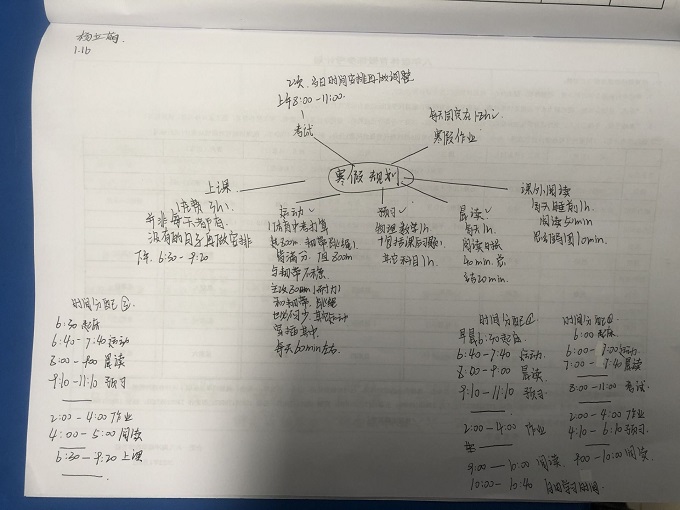 杨立
1.16
2次,当日时间安排再做调整
上午8:00-11:00.
考试
每天固定在1-2h
寒假作业
寒假 规划
上课
1月费 3h
并非每天都有
没有的日子再做安排
下午. 6:30-9:20
运动
800m
皆满分
主攻800m(耐力)
和韧带. 跳绳
也必不可少, 其它运动
穿插其中.
每天60min左右.
预习
物理数学1h
其它科目1h
晨读
每天1h.
阅读
40min.
20min.
课外阅读
每天睡前1h.
阅读50min
思维导图10min.
时间分配③
6:30起床
6:40-7:40运动
8:00-9:00 晨读
9:10-11:10 预习
2:00-4:00 作业
4:00-5:00 阅读
6:30-9:20 上课
时间分配①
早晨6:30起床
6:40-7:40 运动.
8:00-9:00 晨读.
9:10-11:10 预习
2:00-4:00 作业
9:00-10:00 阅读.
10:00-10:40 自由学习时间.
时间分配②
6:00起床
6:00-7:00运动
7:00-7:40晨读
8:00-11:00 考试.
2:00-4:00作业
4:10-6:10预习.
9:00-10:00 阅读.